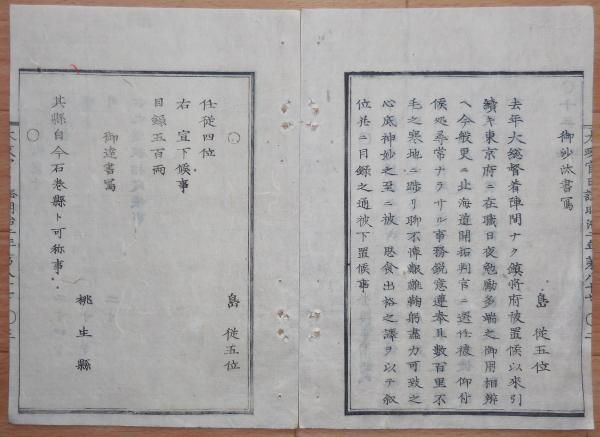 御沙汰書寫
島 從五位
去年大總督着陣間ナク鎮將府被置候以來引
續キ東京府ニ在職日夜勉勵多端之御用相辨
ヘ今般更ニ北海道開拓判官ニ選任被 仰付
候処尋常ナラサル事務鋭意速奉且數百里不
毛之寒地ニ跨リ聊不憚艱難鞠躬盡力可致之
心底神妙之至ニ被 思食出格之譯ヲ以テ叙
位并ニ目録之通被下置候事
○
島 從五位
任從四位
右 宣下候事
目録五百両
御達書寫
桃生縣
其縣自今石巻縣ト可称事
○